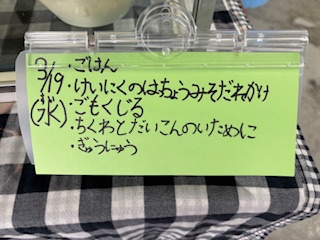 3/19 ・ごはん
・けいにくのはちょうみそだれかけ
(水) ・ごもくじる
・ちくわとだいこんのいために
・ぎゅうにゅう